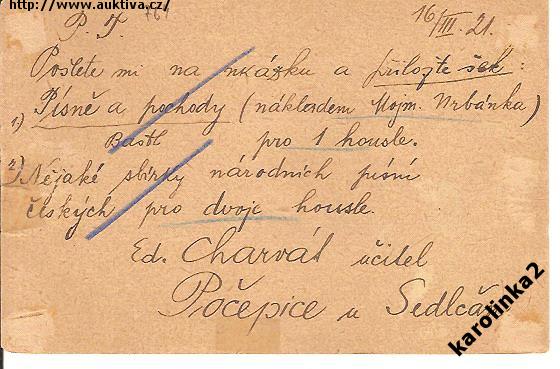 http://www.auktiva.cz/
P. T. 761 16/III. 21.
Pošlete mi na ukázku a přilojte šek:
1) Písně a pochody (nákladem Mojm. Urbánka)
Bastl pro 1 housle.
2) Nějaké sbírky národních písní
českých pro dvoje housle.
Ed. Charvát učitel
Počepice u Sedlčan
karolinka2